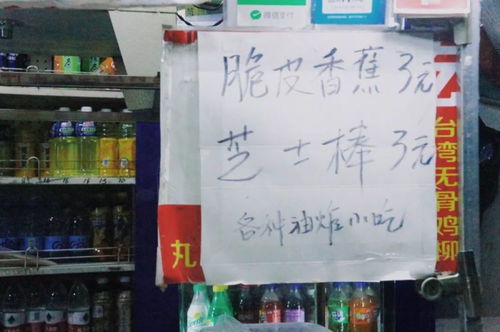 微信支付
脆皮香蕉3元
芝士棒3元
各种油炸小吃
台湾无骨鸡柳
丸